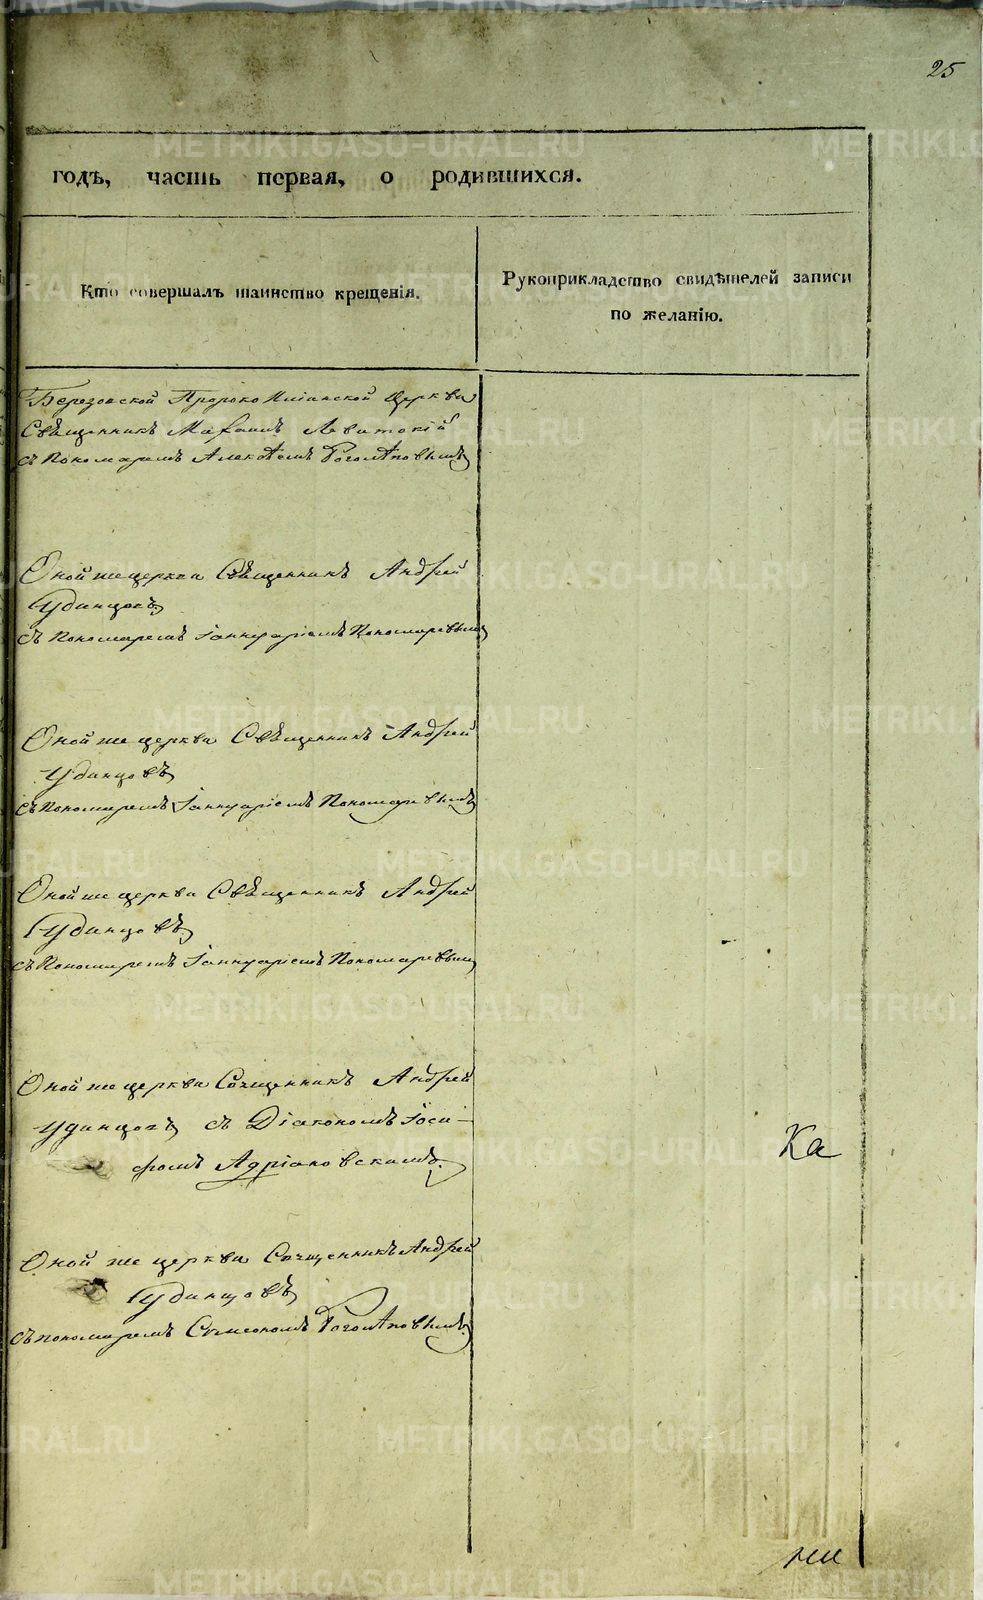 25
годъ, часть первая, о родившихся.
Кто совершалъ таинство крещенія.
Рукоприкладство свидѣтелей записи
по желанію.
Березовской Пророко Илiинской Церкви
Священникъ Максимъ Левитскій
съ Пономаремъ Алексѣемъ
Оной же церкви Священникъ Андрей
Удинцовъ
съ Пономаремъ Іаннуаріемъ Пономаревымъ
Оной же церкви Священникъ Андрей
Удинцовъ
съ Пономаремъ Іаннуаріемъ Пономаревымъ
Оной же церкви Священникъ Андрей
Удинцовъ
съ Пономаремъ Іаннуаріемъ Пономаревымъ
Оной же церкви Священникъ Андрей
Удинцовъ съ Діакономъ Іоси-
фомъ Адріановскимъ
Ка
Оной же церкви Священникъ Андрей
Удинцовъ
съ пономаремъ Симеономъ
METRIKI.GASO-URAL.RU